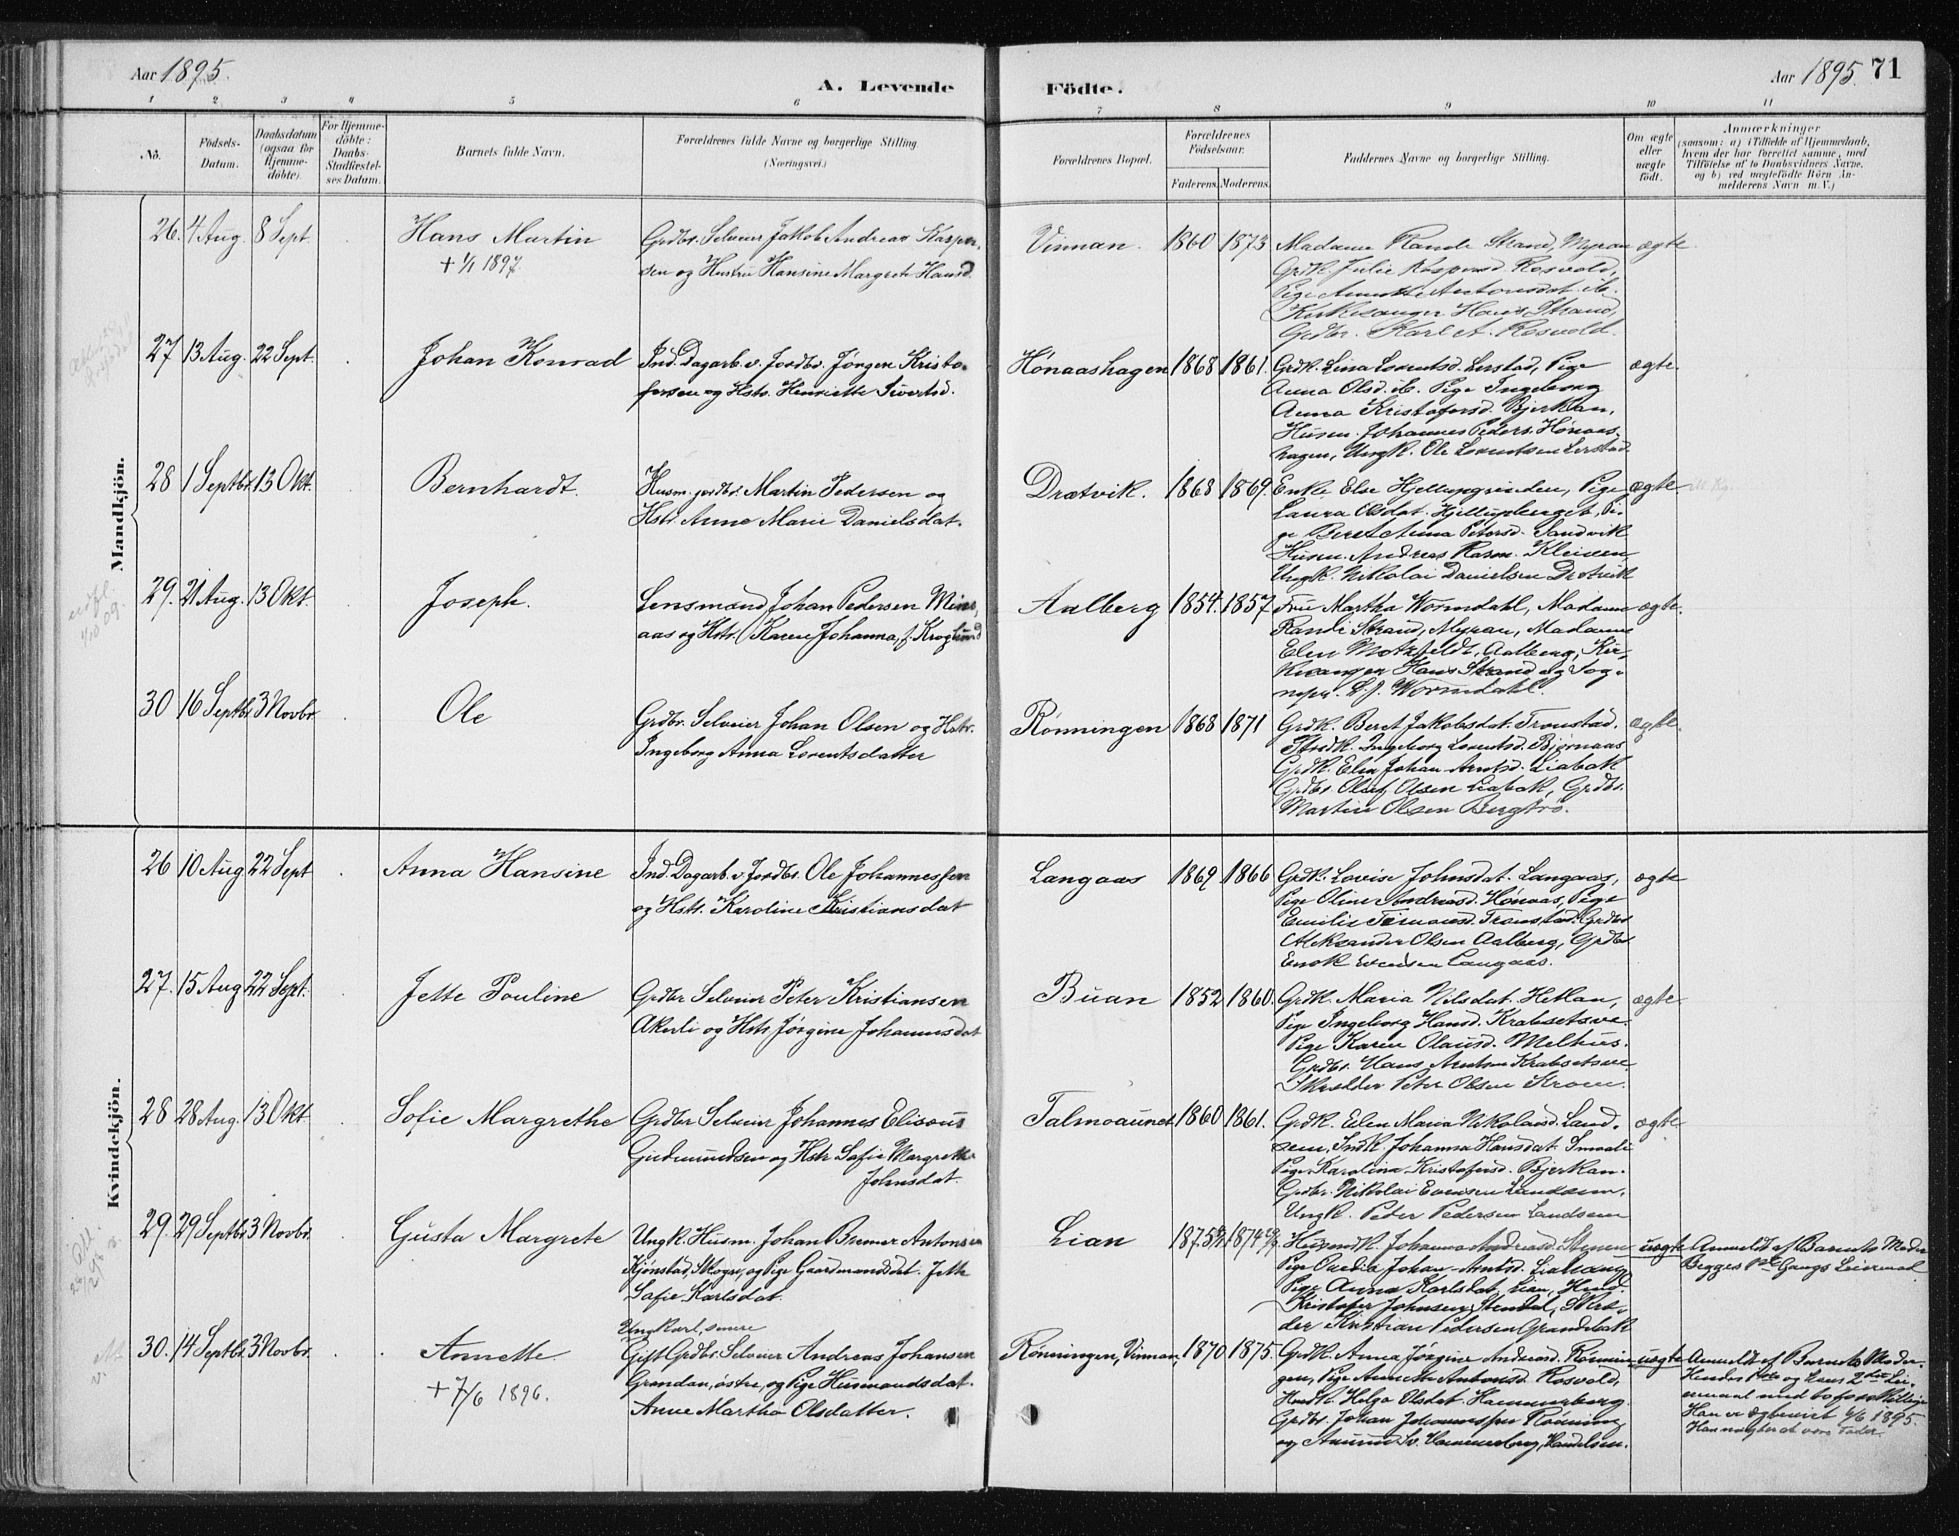 Aar 1895.
A. Levende
Födte.
Aar 1895. 71
1 2 3 4 5 6 7 8 9 10 11
No.
Födsels-
Datum.
Daabsdatum
(ogsaa for
Hjemme-
döbte).
For Hjemme-
döbte:
Daabs-
Stadfæstel-
ses Datum.
Barnets fulde Navn.
Forældrenes fulde Navne og borgerlige Stilling
(Næringsvei.)
Forældrenes Bopæl.
Forældrenes
Födselsaar.
Faderens. Moderens.
Faddernes Navne og borgerlige Stilling.
Om ægte
eller
uægte
födt.
Anmærkninger
(saasom: a) i Tilfælde af Hjemmedaab,
hvem der har forrettet samme, med
Tilföielse af to Daabsvidners Navne,
og b) ved uægtefödte Börn An-
melderens Navn m. V.)
Mandkjön.
26. 4 Aug. 8 Sept.
Hans Martin
+ 1/1 1897.
Grdbr. Selveier Jakob Andreas Kasper-
sen og Hustru Hansine Margrete Hansd.
Vinnan. 1860 1873
Madame Rande Strand, Myran
Grdk. Julie Kaspersd. Rosvold,
Pige Anette Antonsdat. ib.
Kirkesanger Hans Strand,
Grdbr. Karl A. Rosvold.
ægte.
27 13 Aug. 22 Sept.
Johan Konrad
Ind. Dagarb. v. Jordbr. Jørgen Kristo-
fersen og Hstr. Henriette Sivertsd.
Hønaashagen 1868 1861.
Grdk. Lina Lorentsd. Lerstad, Pige
Anna Olsd. ib. Pige Ingeborg
Anna Kristofersd. Bjerkan,
Husm. Johannes Peders. Hønaas-
hagen, Ungk. Ole Lorentsen Lerstad.
ægte.
28 1 Septbr. 13 Okt.
Bernhardt.
Husm. jordbr. Martin Pedersen og
Hstr. Anne Marie Danielsdat.
Drætvik. 1868 1869.
Enke Else Hjellupgrinden, Pige
Laura Olsdat. Hjellupberget, Pi-
ge Beret Anna Petersd. Sandvik
Husm. Andreas Rasm. Kleiven,
Ungk. Nikolai Danielsen Drætvik
ægte
29. 21 Aug. 13 Okt.
Joseph.
Lensmand Johan Pedersen Min-
aas og Hstr. Karen Johanna, f. Kroglund
Aalberg 1854. 1857.
Frue Martha Wormdahl, Madame
Randi Strand, Myran, Madame
Elen Motzfeldt, Aalberg, Kir-
kesanger Hans Strand og Sog-
nepr. L. J. Wormdahl.
ægte.
30 16 Septbr. 3 Novbr.
Ole
Grdbr. Selveier Johan Olsen og Hstr.
Ingeborg Anna Lorentsdatter
Rønningen 1868 1871
Grdk. Beret Jakobsdat. Tronstad.
Ingeborg Lorentsd. Bjørnaas
Grdk. Elen Johan-Arntsd. Liabak
Grdbr. Oluf Olsen Liabak, Grdbr.
Martin Olsen Bergtrø.
ægte.
Kvindekjön.
26 10 Aug 22 Sept
Anna Hansine
Ind. Dagarb. v. Jordbr. Ole Johannessen
og Hstr. Karoline Kristiansdat
Langaas 1869 1866
Grdk. Lovise Johnsdat. Langaas,
Pige Oline Andreasd. Hønaas, Pige
Emilie Tronstad. Grdbr.
Aleksander Olsen Aalberg, Grdbr.
Enok Evensen Langaas.
ægte
27. 15 Aug 22 Sept.
Jette Pouline
Grdbr Selveier Peter Kristiansen
Akerli og Hstr Jørgine Johannesdat
Buan 1852 1860.
Grdk. Maria Nilsdat. Hetlan,
Pige Ingeborg Hansd. Krabsetsve.
Pige Karen Olausd. Melhus.
Grdbr. Hans Arntsen Krabsetsve
Skrædder Peter Olsen Kroen.
ægte
28 28 Aug. 13 Okt.
Sofie Margrethe
Grdbr Selveier Johannes Eliseus
Gudmundsen og Hstr Sofie Margrethe
Johnsdat.
Talmoaunet 1860 1861.
Grdk. Elen Maria Nikolaisd. Land-
sem, Indk. Johanna Hansdat. Smaali
Pige Karolina Kristofersd. Bjerkan.
Grdbr. Nikolai Evensen Landsem,
Ungk. Peder Pedersen Landsem
ægte
29. 29 Septbr. 3 Novbr.
Gusta Margrete
Ungk. Husm. Johan Bremer Antonsen
Kjønstad, Skogn, og Pige Gaardmandsdat. Jette
Sofie Karlsdat.
Lian 1875 1874
Husmdk. Johanna Andreasd. Stenen
Pige Amelia Johan-Arntsd.
Pige Anna Karlsdat, Lian, Husm.
Kristofer Johnsen Stendal, Skræd-
der Kristian Pedersen Grandebak
uægte
Anmeldt af Barnets Moder
Begges 1ste Gangs Leiermaal
30. 14 Septbr. 3 Novbr.
Annette
+ 7/6 1896.
Ungkarl, senere
Gift Grdbr. Selveier Andreas Johansen
Grandan, østre, og Pige Husmandsdat.
Anne Martha Olsdatter.
Rønningen, Vinnan 1870 1875.
Grdk. Anna Jørgine Andreasd. Rønnin-
gen, Pige Anette Antonsd Rosvold,
Husmdk. Helga Olsdat. Hammerberg.
Grdbr. Johan Johannessen Rønning
og Hammerberg, Handelsm.
uægte
Anmeldt af Barnets Moder.
Hendes 1ste og hans 2det Lei-
ermaal med to forskjellige
Han er ægteviet 4/6 1895.
Han nægter at være Fader.